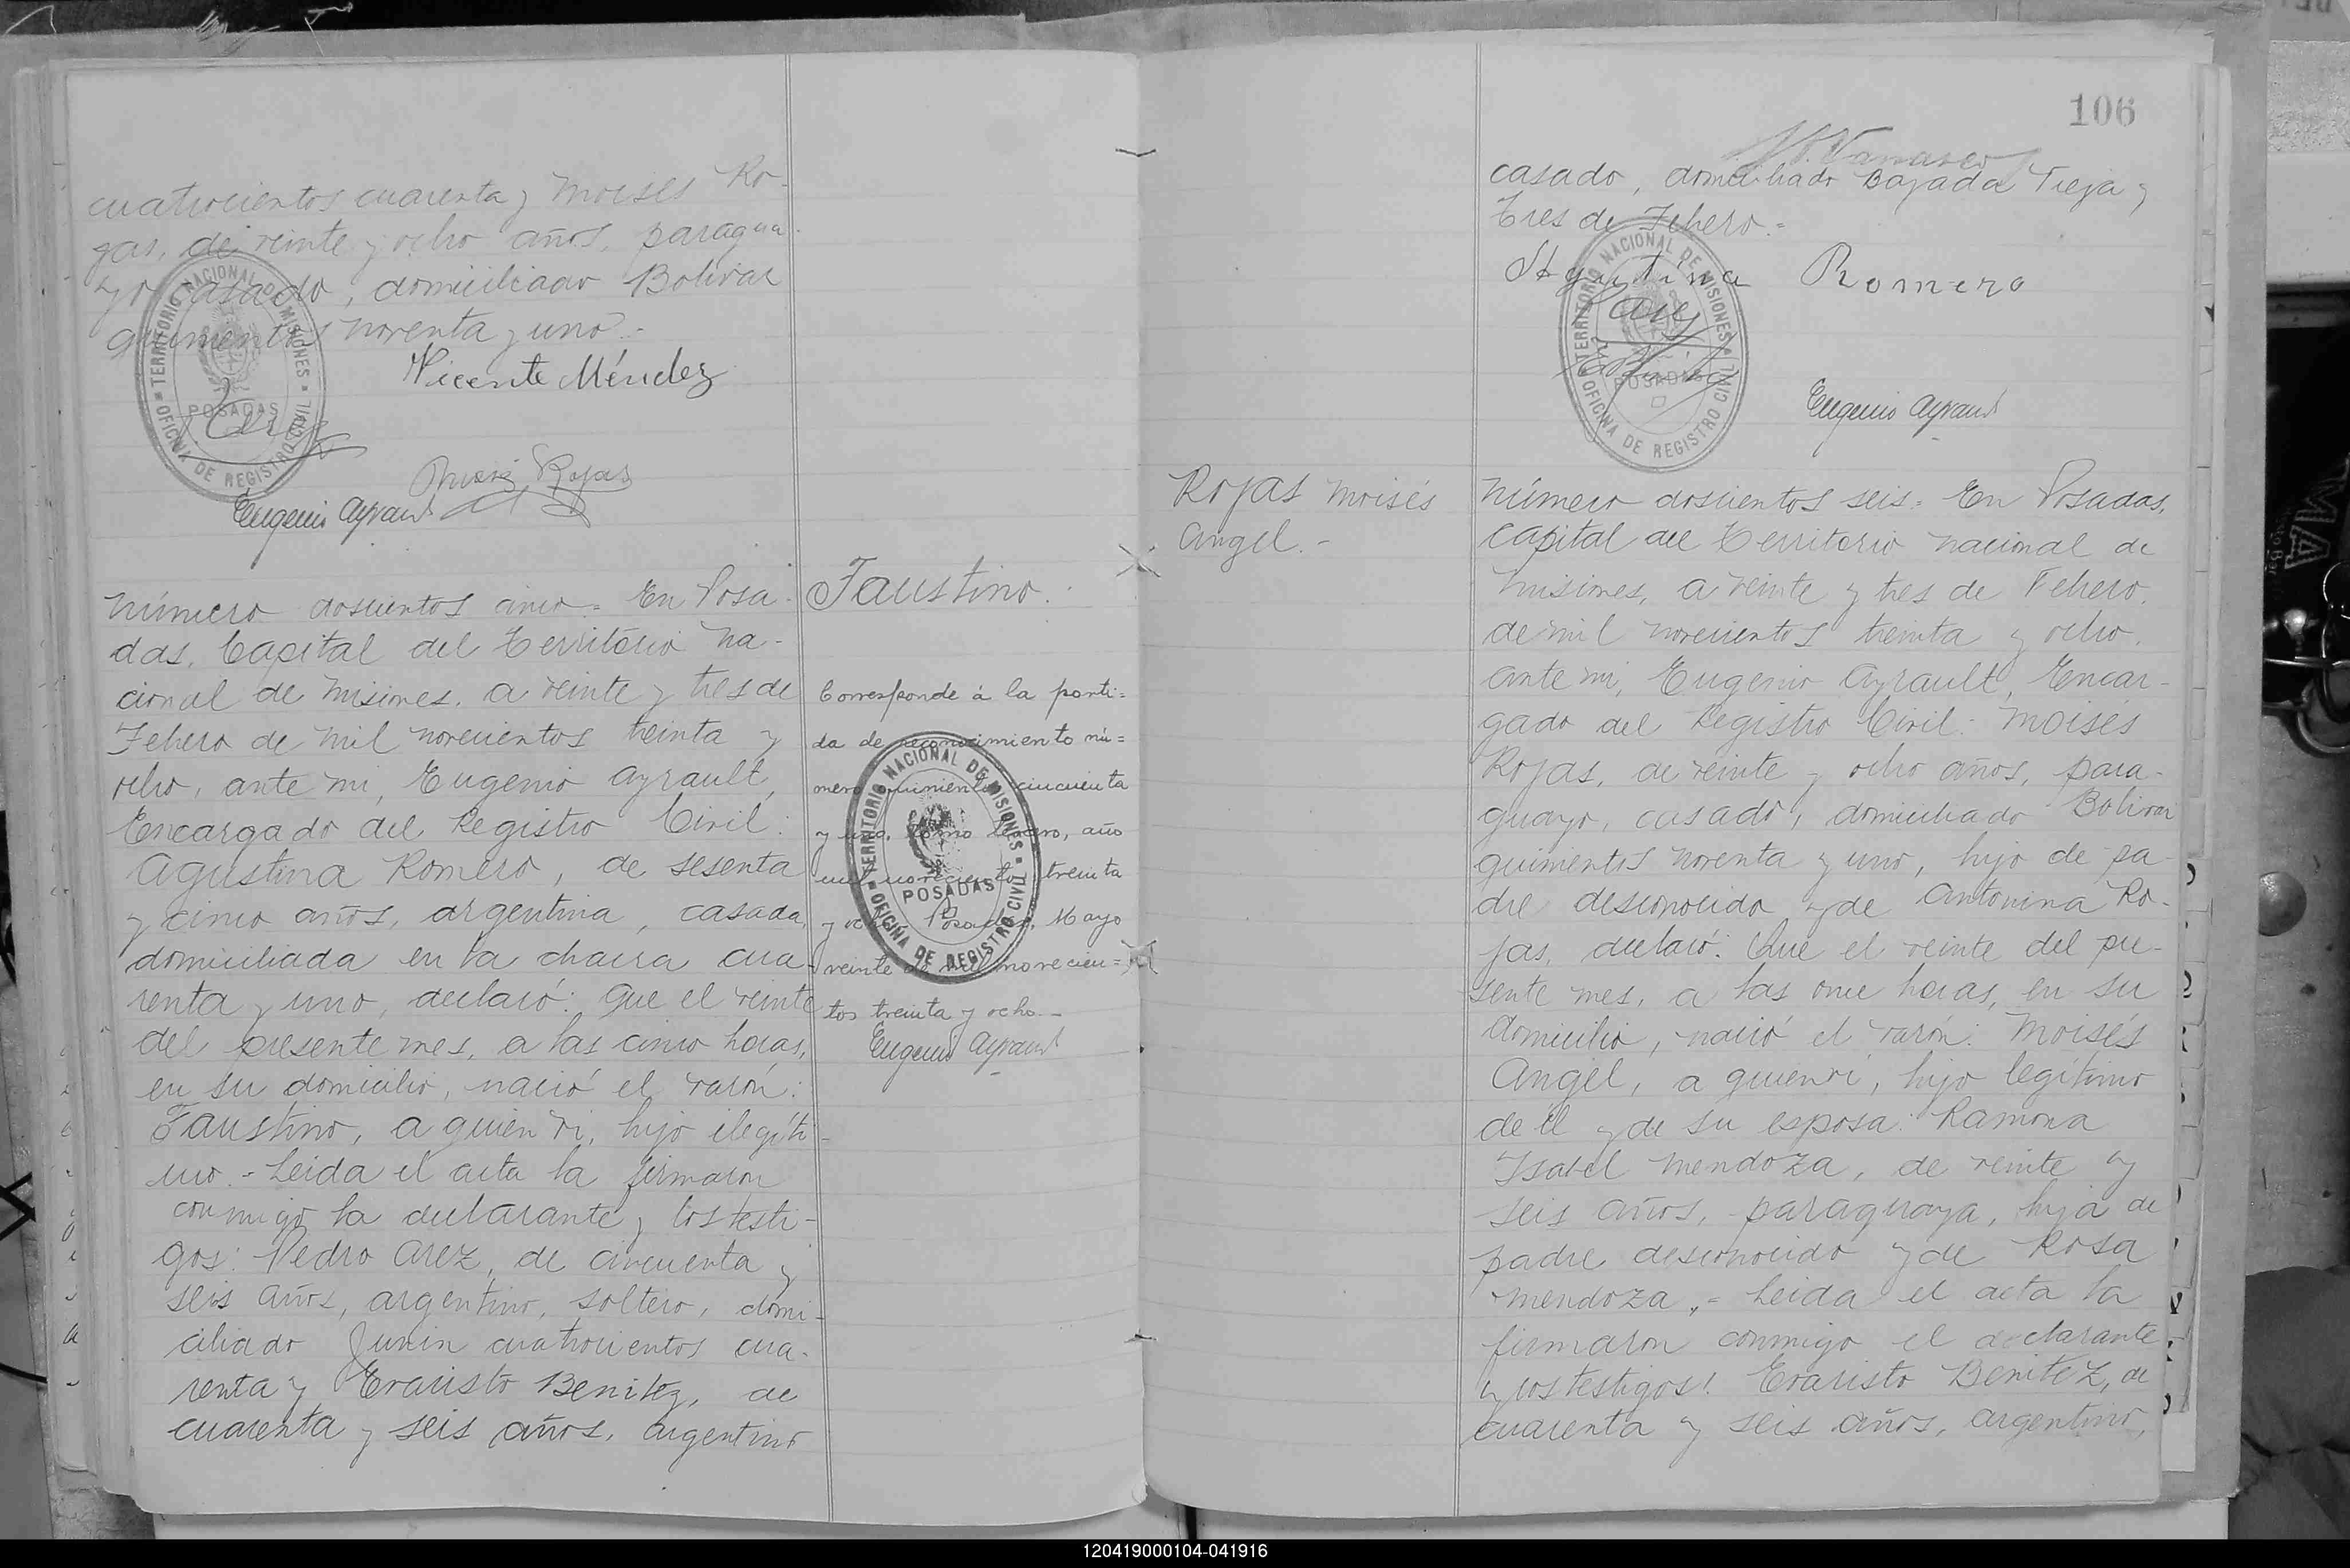 cuatrocientos cuarenta y Moises Ro-
jas, de veinte y ocho años, paragua-
yo casado, domiciliado Bolivar
quinientos noventa y uno.-
Vicente Méndez
TERRITORIO NACIONAL DE MISIONES
POSADAS
OFICINA DE REGISTRO CIVIL
Rojas
Eugenio Ayrault
Número doscientos cinco = En Posa-
das, Capital del Territorio Na-
cional de Misiones, a veinte y tres de
Febero de mil novecientos treinta y
ocho, ante mi, Eugenio Ayrault,
Encargado del Registro Civil:
Agustina Romero, de sesenta
y cinco años, argentina, casada,
domiciliada en la chacra cua-
renta y uno, declaró: Que el veinte
del presente mes, a las cinco horas,
en su domicilio, nació el varón:
Faustino, a quien vi, hijo ilegíti-
mo.- Leida el acta la firmaron
conmigo la declarante y los testi-
gos: Pedro Arez, de cincuenta y
seis años, argentino, soltero, domi-
ciliado Junin cuatrocientos cua-
renta y Evaristo Benitez, de
cuarenta y seis años, argentino
Faustino.
Corresponde á la parti=
da de reconocimiento nú=
mero quinientos cincuenta
y uno, tomo, año
mil novecientos treinta
y ocho. Posadas, Mayo
veinte de mil novecien=
tos treinta y ocho.-
Eugenio Ayrault
TERRITORIO NACIONAL DE MISIONES
POSADAS
OFICINA DE REGISTRO CIVIL
106
casado, domiciliado Bajada Vieja y
Tres de Febero.=
Agustina Romero
TERRITORIO NACIONAL DE MISIONES
POSADAS
OFICINA DE REGISTRO CIVIL
Eugenio Ayrault
Rojas Moisés
Angel.-
Número doscientos seis = En Posadas,
Capital del Territorio Nacional de
Misiones, a veinte y tres de Febero,
de mil novecientos treinta y ocho,
ante mi, Eugenio Ayrault, Encar-
gado del Registro Civil: Moisés
Rojas, de veinte y ocho años, para-
guayo, casado, domiciliado Bolivar
quinientos noventa y uno, hijo de pa-
dre desconocido y de Antonina Ro-
jas, declaró: Que el veinte del pre-
sente mes, a las once horas, en su
domicilio, nació el varón: Moisés
Angel, a quien vi, hijo legítimo
de él y de su esposa: Ramona
Isabel Mendoza, de veinte y
seis años, paraguaya, hija de
padre desconocido y de Rosa
Mendoza.- Leida el acta la
firmaron conmigo el declarante
y los testigos: Evaristo Benitez, de
cuarenta y seis años, argentino,
120419000104-041916